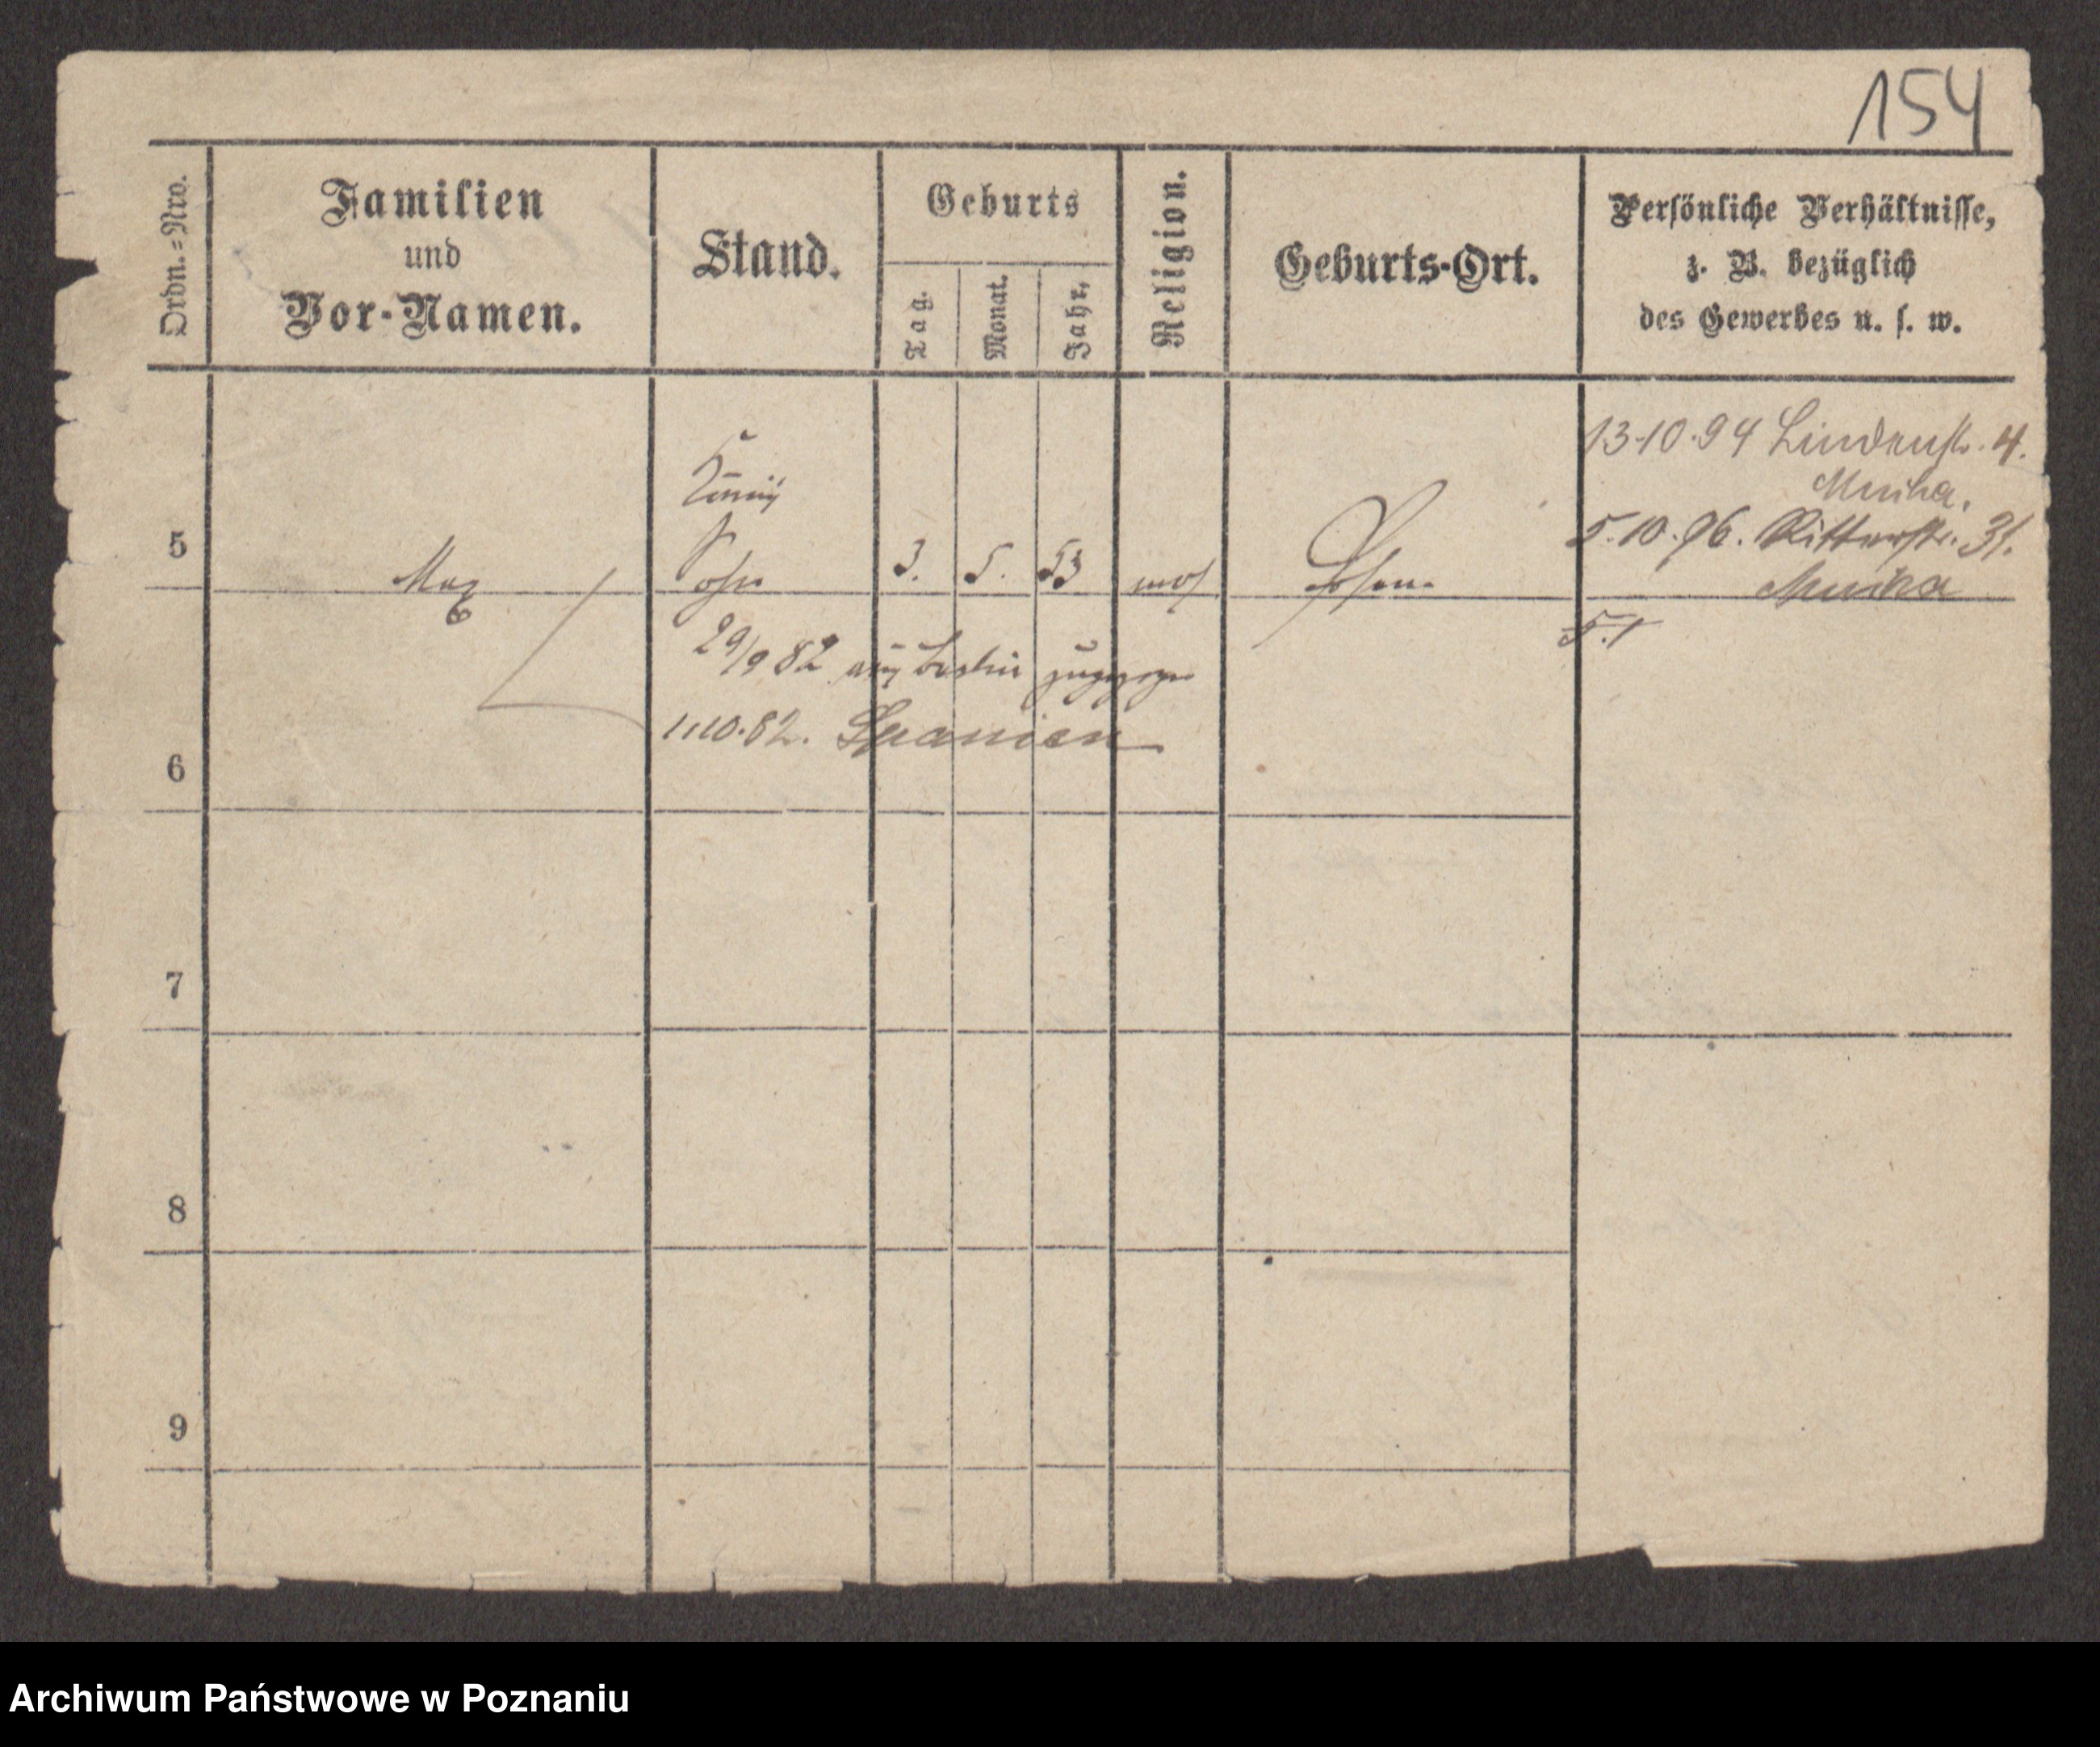 154
Ordn.=Nro.
Familien
und
Vor-Namen.
Stand.
Geburts
Tag.
Monat.
Jahr.
Religion.
Geburts-Ort.
Persönliche Verhältnisse,
z. B. bezüglich
des Gewerbes u. s. w.
13.10.94 Lindenstr. 4.
5.10.96. Ritterstr. 31.
5 Max Sohn 3. 5. 53 mos Posen
5.1
29/9 82 aus Berlin zugezogen
1.10.82. Spanien
6
7
8
9
Archiwum Państwowe w Poznaniu